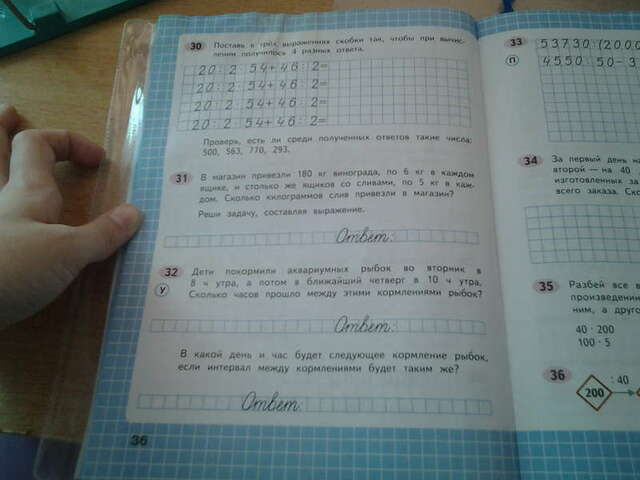 30 Поставь в трёх выражениях скобки так, чтобы при вычис-
лении получилось 4 разных ответа.
20 : 2 · 54 + 46 : 2 =
20 : 2 · 54 + 46 : 2 =
20 : 2 · 54 + 46 : 2 =
20 : 2 · 54 + 46 : 2 =
Проверь, есть ли среди полученных ответов такие числа:
500, 563, 770, 293.
31 В магазин привезли 180 кг винограда, по 6 кг в каждом
ящике, и столько же ящиков со сливами, по 5 кг в каж-
дом. Сколько килограммов слив привезли в магазин?
Реши задачу, составляя выражение.
Ответ:
32 Дети покормили аквариумных рыбок во вторник в
У 8 ч утра, а потом в ближайший четверг в 10 ч утра.
Сколько часов прошло между этими кормлениями рыбок?
Ответ:
В какой день и час будет следующее кормление рыбок,
если интервал между кормлениями будет таким же?
Ответ:
36
33 53730 : (2000
П 4550 : 50 - 3
34 За первый день
второй — на 40
изготовленных за
всего заказа.
35 Разбей все
произведени
ним, а друго
40 · 200
100 · 5
36 200 : 40